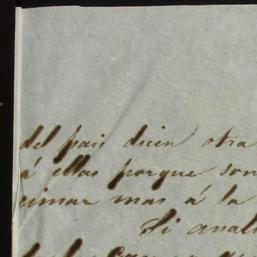 del pais dicen otra
á ellas porque son
cimar mas á la
Si anali